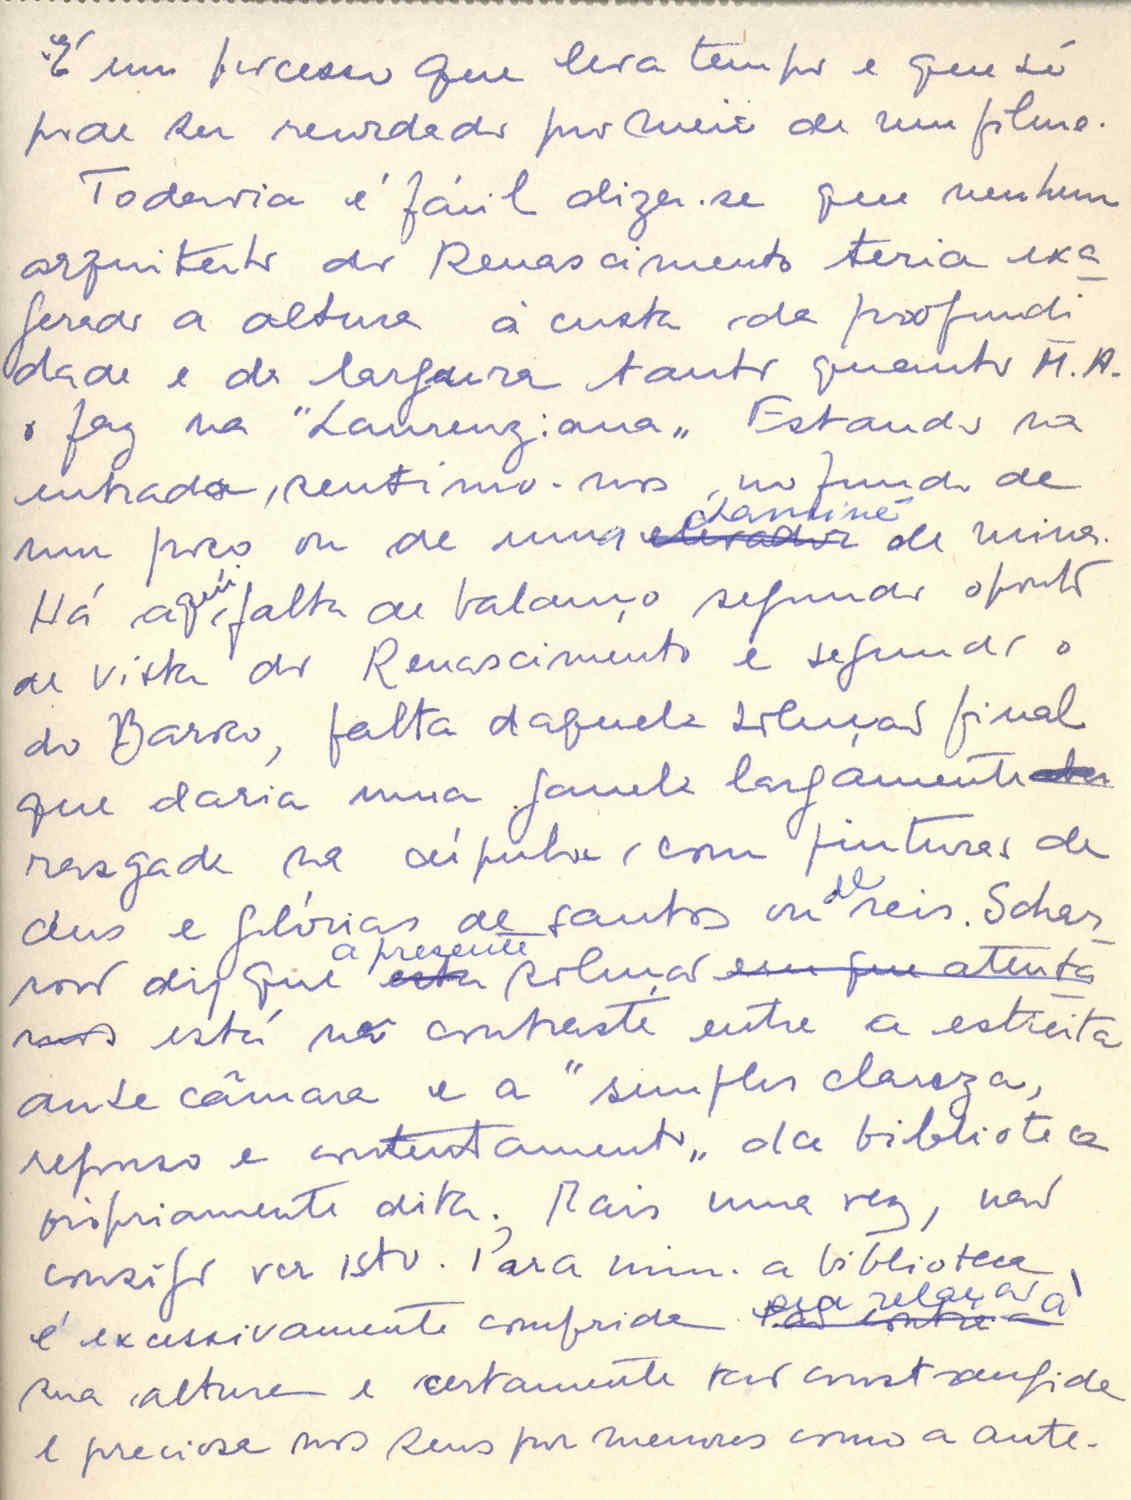 É um processo que leva tempo e que só
pode ser recordado por meio de um filme.
Todavia é fácil dizer-se que nenhum
arquitecto do Renascimento teria exa
gerado a altura à custa da profundi
dade e da largura tanto quanto M. A.
o faz na "Laurenziana„ Estando na
entrada, sentimo-nos no fundo de
chaminé
um poço ou de uma elevador de mina.
Há aqui, falta de balanço segundo o ponto
de vista do Renascimento e segundo o
do Barroco, falta daquela solução final
que daria uma janela largamente
rasgada na cúpula, com pinturas de
céus e glórias de santos ou de reis. Schar
a presente
row diz que esta solução em que atenta
mos está no contraste entre a estreita
ante câmara e a "simples clareza,
repouso e contentamento„ da biblioteca
pròpriamente dita. Mais uma vez, não
consigo ver isto. Para mim a biblioteca
em relação à
é excessivamente comprida
sua altura e certamente tão constrangida
e preciosa nos seus pormenores como a ante-